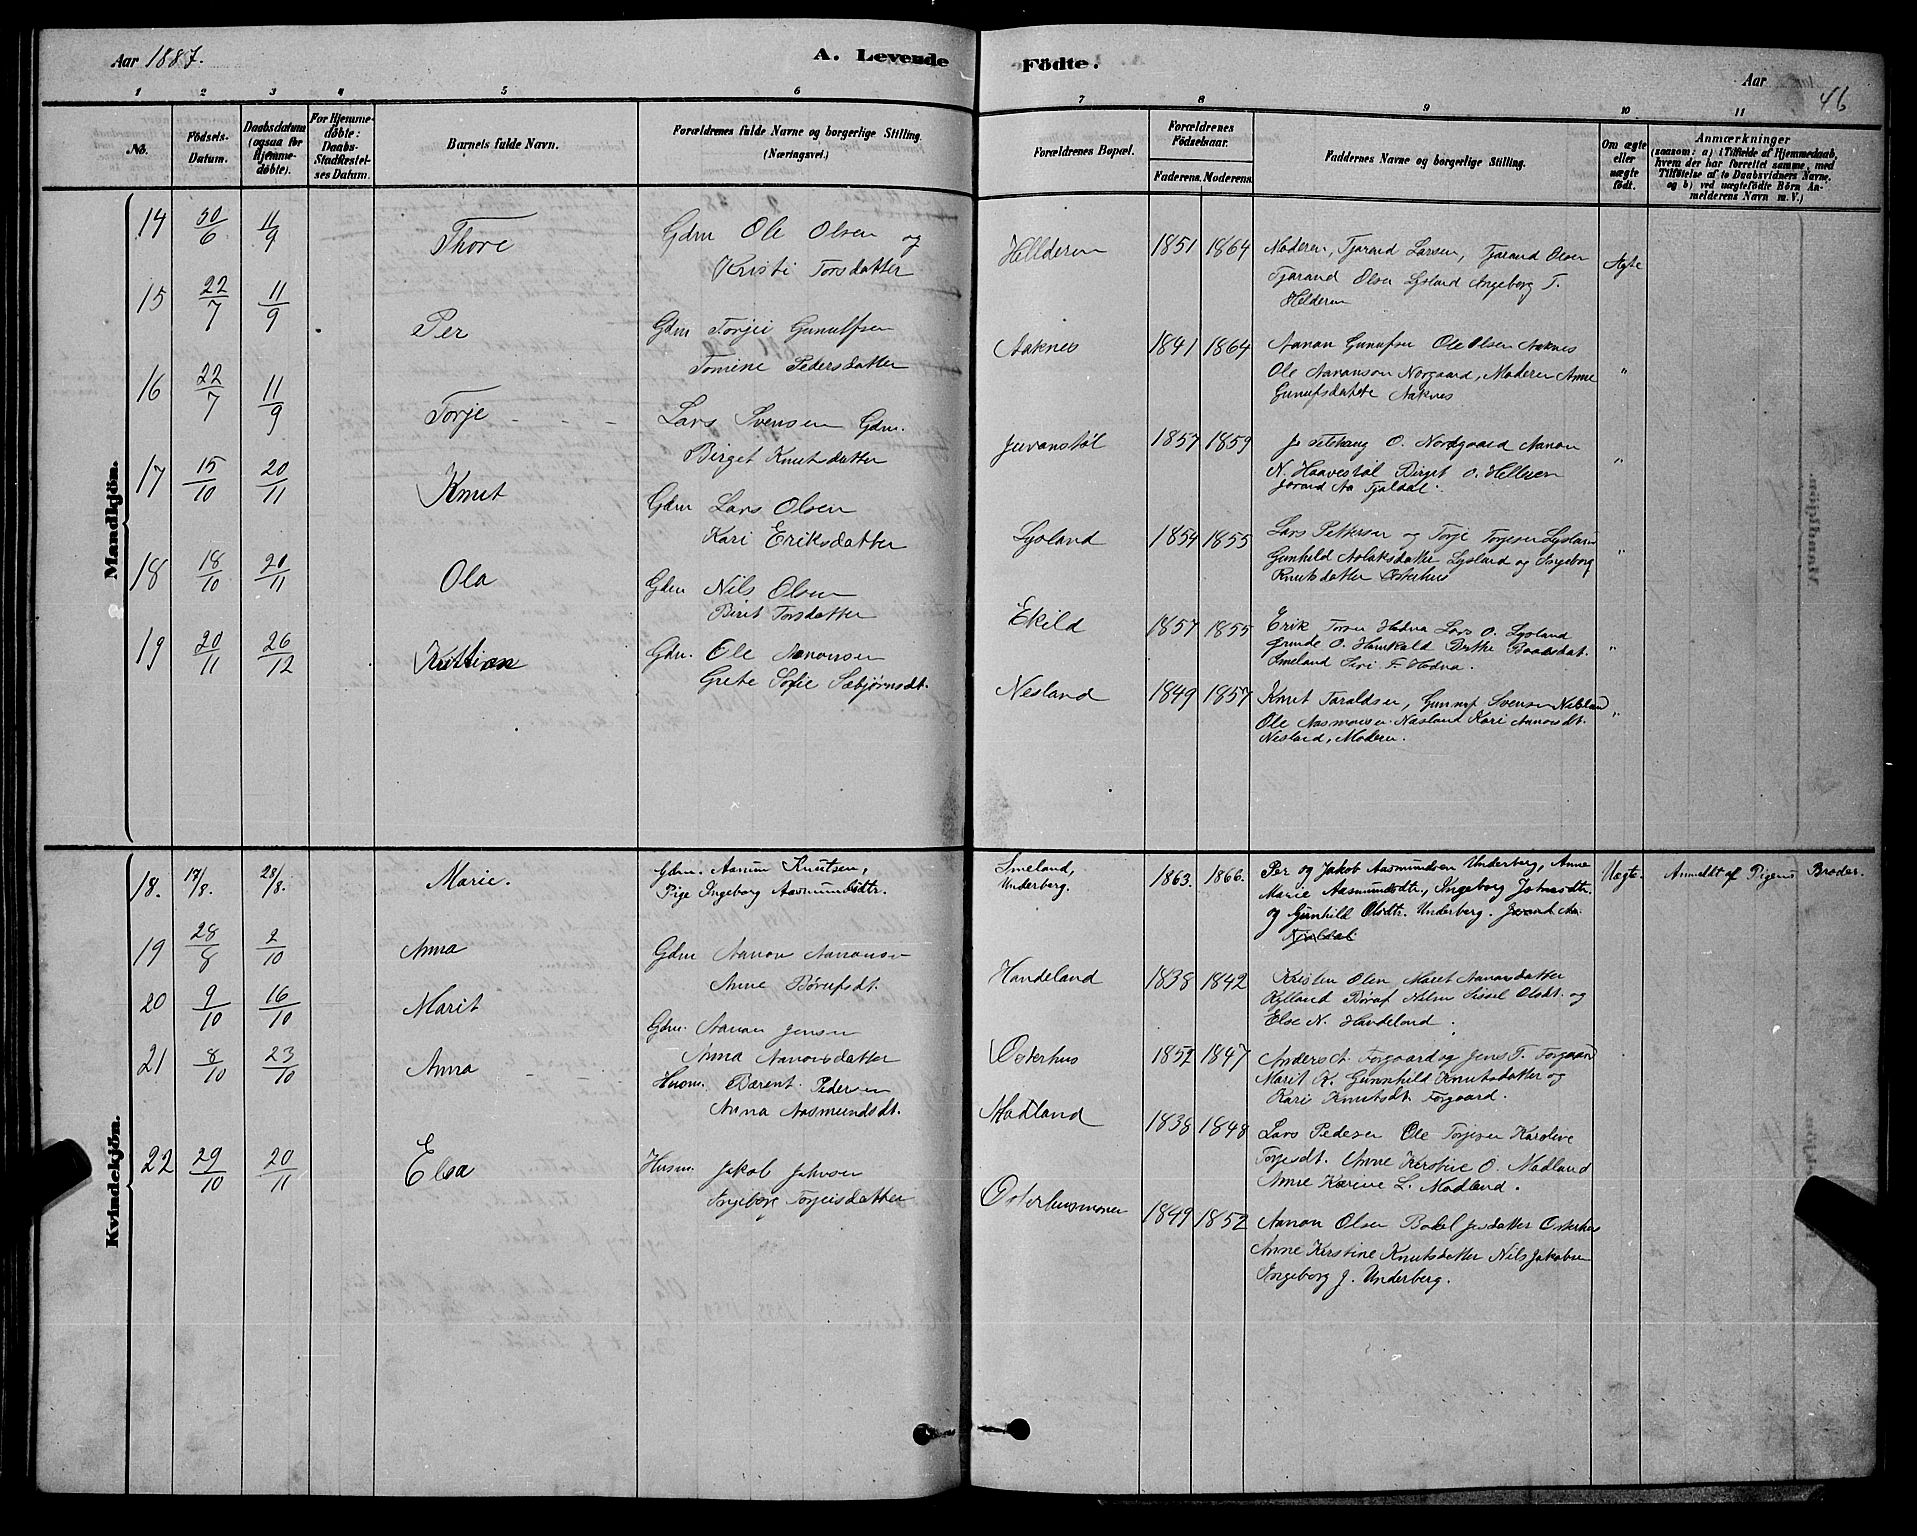 Aar 1887.
A. Levende Födte.
Aar
46
1 2 3 4 5 6 7 8 9 10 11
No.
Födsels-
Datum.
Daabsdatum
(ogsaa for
Hjemme-
döbte).
For Hjemme-
döbte:
Daabs-
Stadfæstel-
ses Datum.
Barnets fulde Navn.
Forældrenes fulde Navne og borgerlige Stilling.
(Næringsvei.)
Forældrenes Bopæl.
Forældrenes
Födselsaar.
Faderens. Moderens.
Faddernes Navne og borgerlige Stilling.
Om ægte
eller
uægte
födt.
Anmærkninger
(saasom: a) i Tilfælde af Hjemmedaab,
hvem der har forrettet samme, med
Tilföielse af to Daabsvidners Navne,
og b) ved uægtefödte Börn An-
melderens Navn m. V.)
Mandkjön.
14 30/6 11/9 Thore Gdm Ole Olsen og
Kristi Torsdatter
Hellderen 1851 1864 Moderen, Tjarand Larsen, Tjarand Olsen
Tjarand Olsen Lysland Angeborg T.
Helderen
Ægte
15 22/7 11/9 Per Gdm Torjei Gunulfsen
Tomine Pedersdatter
Aaknes 1841 1864 Aanon Gunufsen Ole Olsen Aaknes
Ole Aanonson Norgaard, Moderen Anne
Gunufsdatete Aaknes
"
16 22/7 11/9 Torje - - - Lars Svensen Gdm.
Birget Knutsdatter
Juvanstöl 1857 1859 O. Nordgaard Aanon
N. Haavestøl Birget O. Hellren
"
17 15/10 20/11 Knut Gdm Lars Olsen
Kari Eriksdatter
Lysland 1854 1855 Lars Pettersen og Torje Torjesen Lysland
Gunhild Aslaksdatter Lysland og Ingeborg
Knutsdatter Osterhus
"
18 18/10 20/11 Ola Gdm Nils Olsen
Birit Torsdatter
Ekild 1857 1855 Erik Torsen Hodna Lars O. Lysland
Grunde O. Berthe
Smeland Siri T. Hodna.
"
19 20/11 26/12 Kristian Gdm. Ole Aanonsen
Grete Sofie Sæbjørnsdt.
Nesland 1849 1857 Knut Taraldsen, Gunuf Svensen Nesland
Ole Aasmonsen Nesland Kari Aanonsdt.
Nesland, Moderen.
"
Kvindekjön.
18. 17/8. 28/8. Marie. Gdm. Aanun Knutsen,
Pige Ingeborg Aasmundsdtr.
Smeland,
Underberg.
1863. 1866. Per og Jakob Aasmundsen Underberg, Anne
Marie Aasmundsdtr., Ingeborg Johnsdtr.
og Gunhild Olsdtr. Underberg.
Uægte. Anmeldt af Pigens Broder.
19 28/8 2/10 Anna Gdm Aanon Aanonsen
Anne Börufsdt.
Handeland 1838 1842 Kristen Olsen Maret Aanonsdatter
Kylland Böruf Nilsen Sissel Olsdt. og
Else N. Handeland.
20 9/10 16/10 Marit Gdm. Aanon Jensen
Anna Aanonsdatter
Osterhus 1852 1847 Anders A. Forgaard og Jens T. Forgaard
Marit K. Gunnhild Knutsdatter og
Kari Knutsdt. Forgaard.
21 8/10 23/10 Anna - Husm. Bærent Pedersen
Anna Aasmundsdt.
Madland 1838 1848 Lars Pedersen Ole Torjesen Karoline
Torjesdt. Anne Kerstine O. Madland
Anne Karine L. Madland.
22 29/10 20/11 Elsa Husm. Jakob Jahnsen
Ingeborg Torjeisdatter
Osterhusmonen 1849 1852 Aanon Olsen Bodel Jensdatter Osterhus
Anne Kerstine Knutsdatter Nils Jakobsen
Ingeborg J. Underberg.